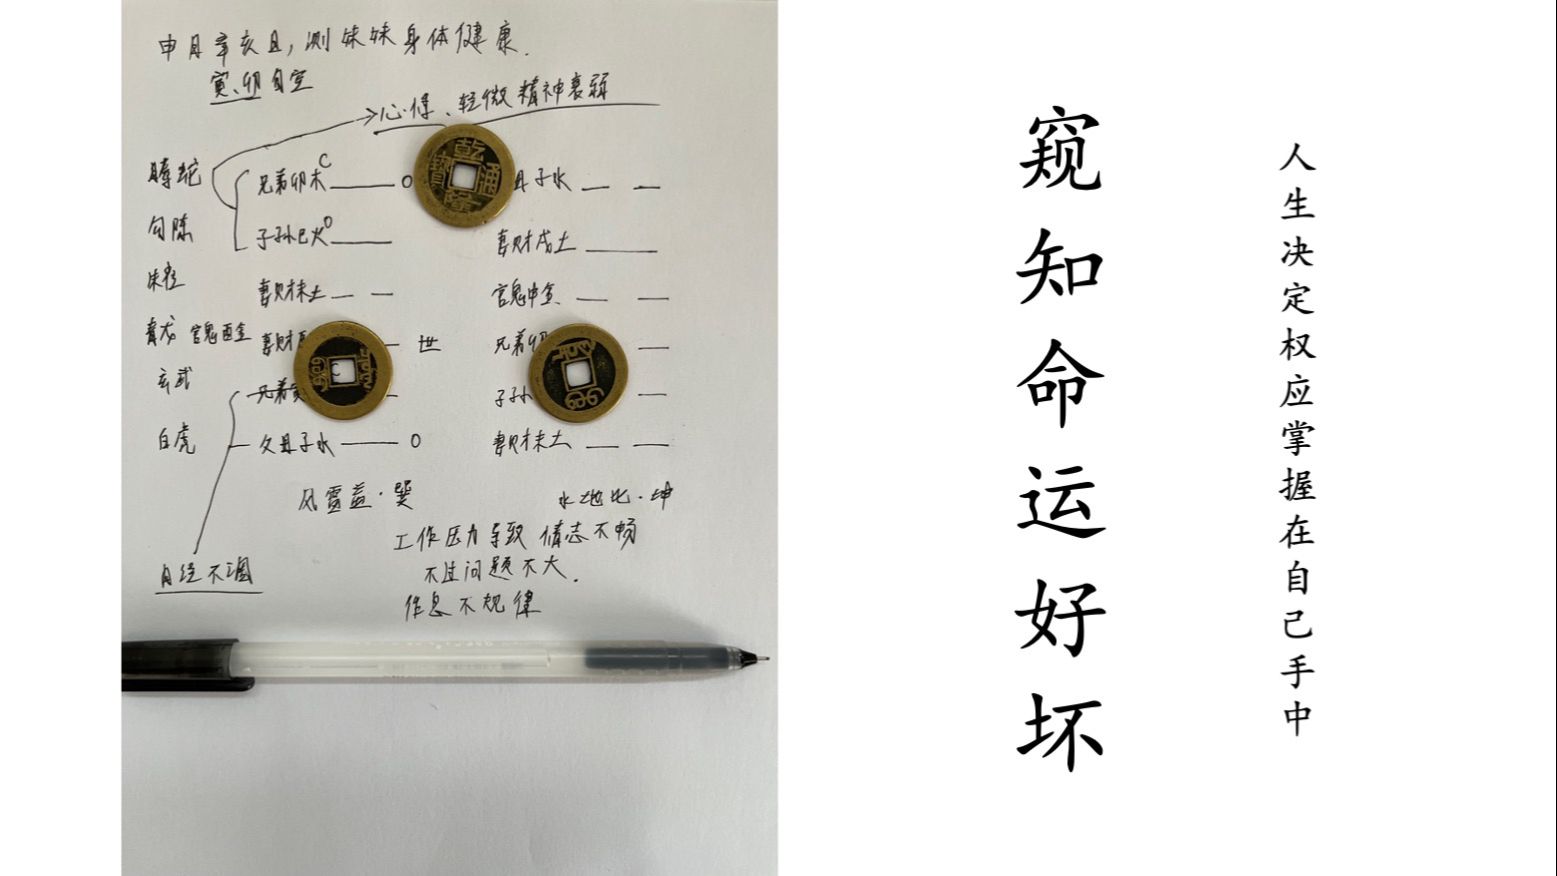 申月辛亥日,测妹妹身体健康.
寅、卯旬空
心悸、轻微精神衰弱
螣蛇 兄弟卯木 子水
勾陈 子孙巳火 妻财戌土
朱雀 妻财未土 官鬼申金
青龙 官鬼酉金 妻财 世 兄弟
玄武 兄弟 子孙
白虎 父母子水 妻财未土
风雷益·巽 水地比·坤
工作压力导致情志不畅
不过问题不大.
作息不规律
月经不调
乾隆通寶
窥知命运好坏
人生决定权应掌握在自己手中